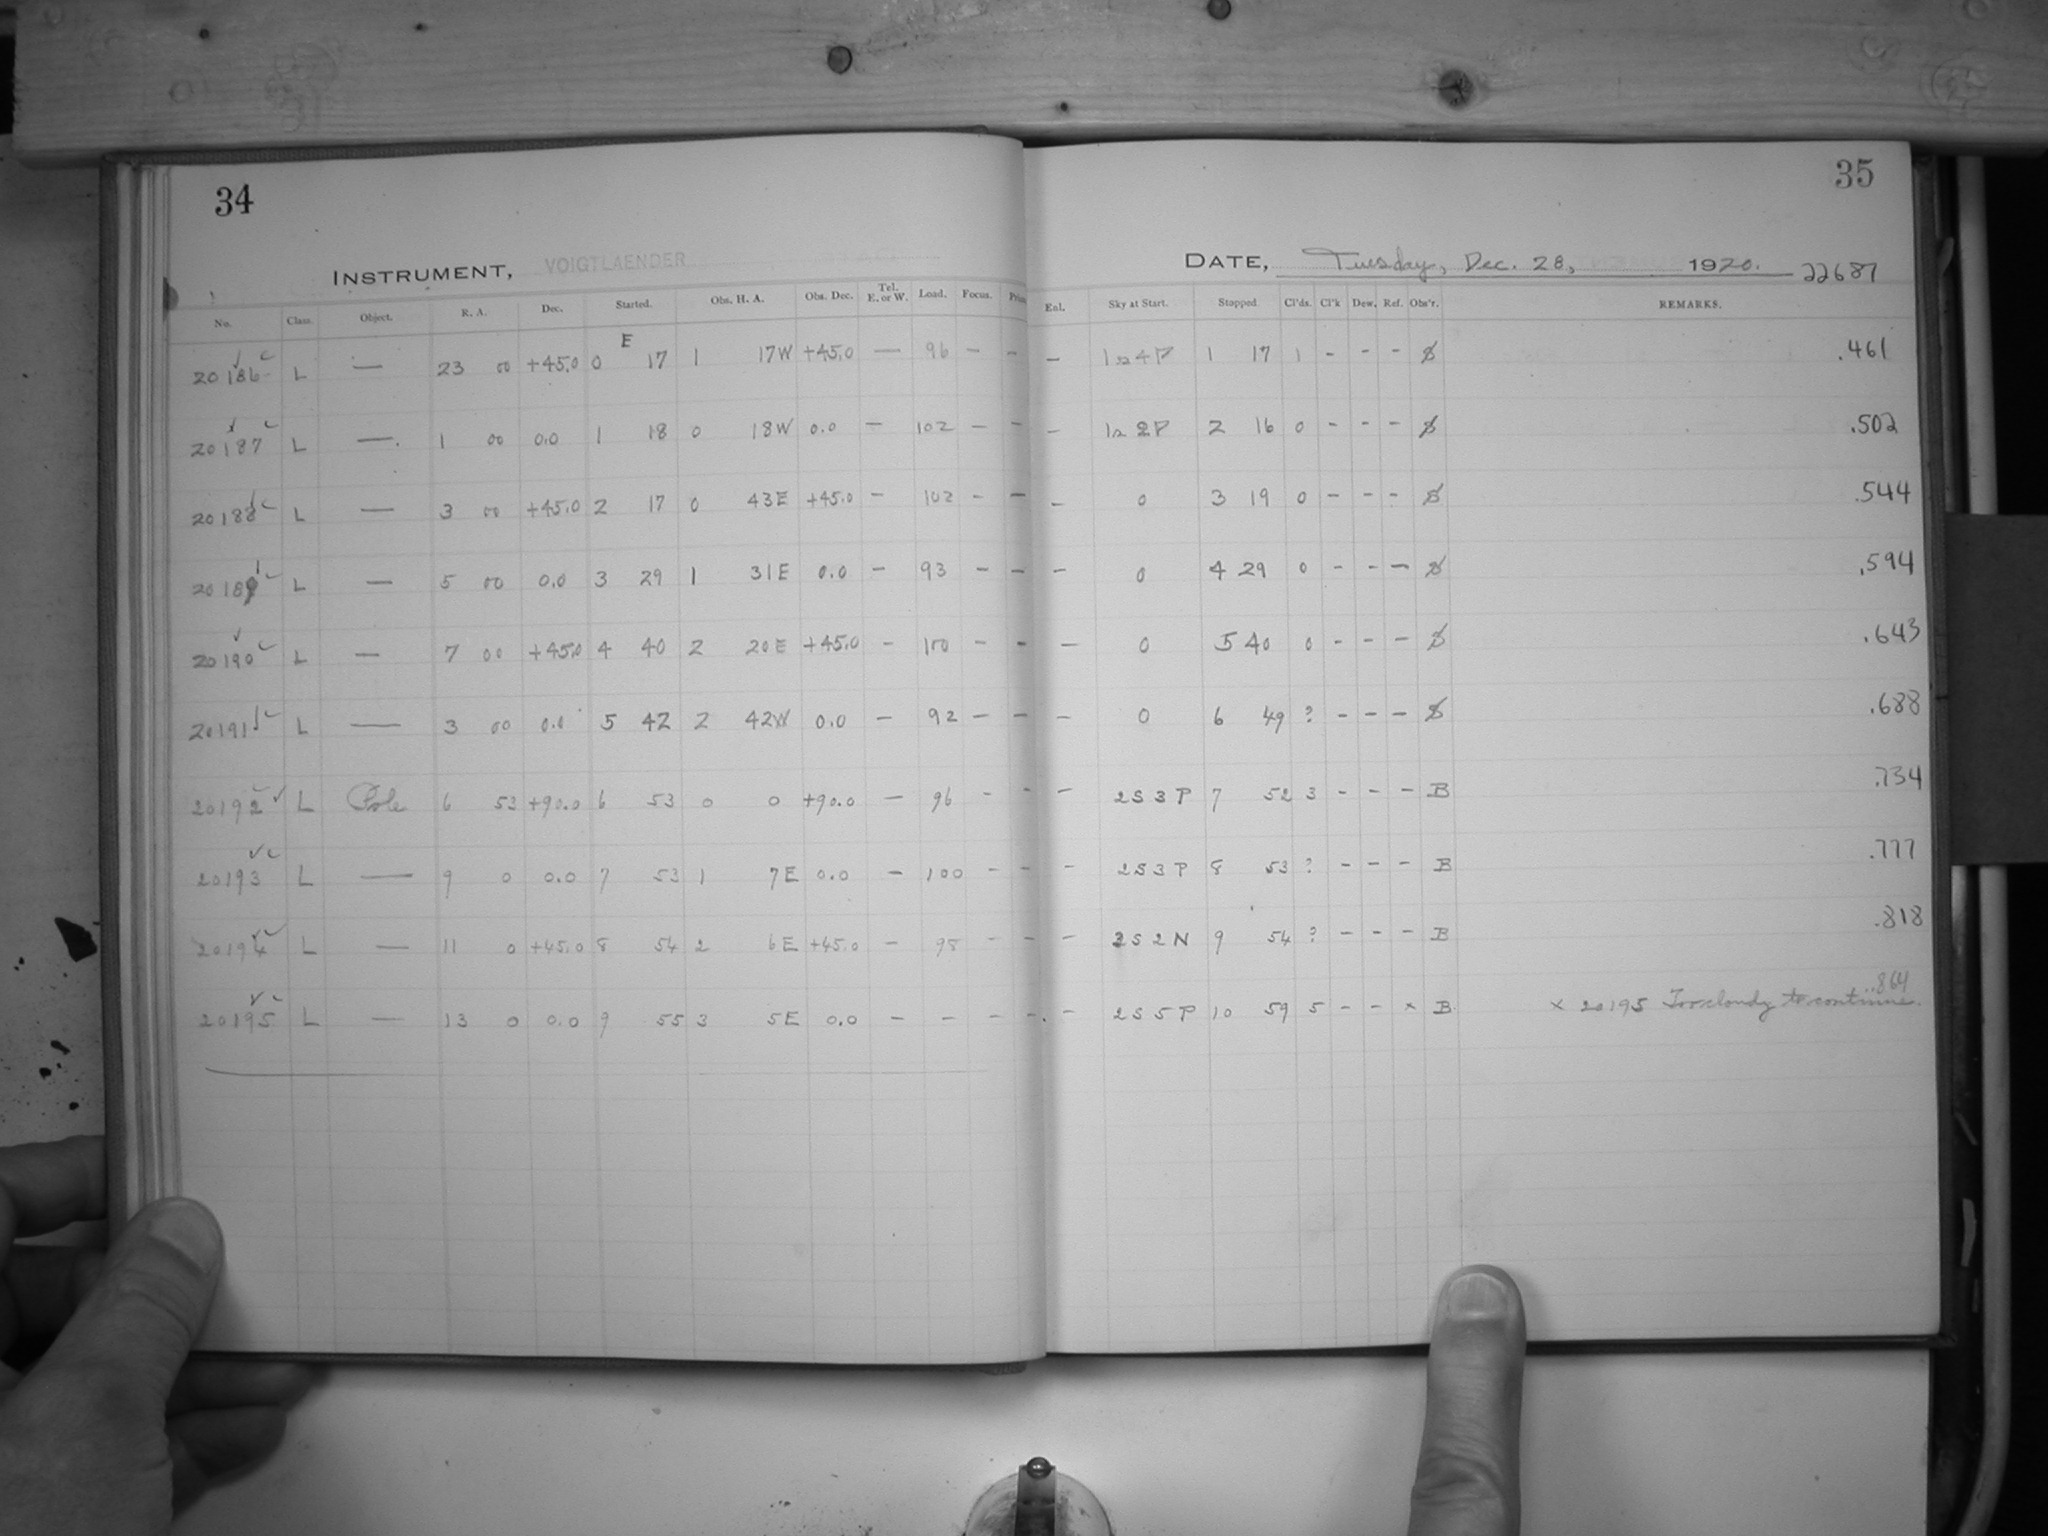 34
35
INSTRUMENT, VOIGTLAENDER
DATE, Tuesday, Dec. 28, 1920. 22687
No. Class. Object. R. A. Dec. Started. Obs. H. A. Obs. Dec. Tel. E. or W. Load. Focus. Enl. Sky at Start. Stopped. Cl'ds. Cl'k Dew. Ref. Obs'r. REMARKS.
20186 L — 23 00 +45.0 E 0 17 1 17W +45.0 — 96 - - - 1s4P 1 17 1 - - - S .461
20187 L — 1 00 0.0 1 18 0 18W 0.0 - 102 - - - 1s2P 2 16 0 - - - S .502
20188 L — 3 00 +45.0 2 17 0 43E +45.0 - 102 - - - 0 3 19 0 - - - S .544
20189 L — 5 00 0.0 3 29 1 31E 0.0 - 93 - - - 0 4 29 0 - - - S .594
20190 L — 7 00 +45.0 4 40 2 20E +45.0 - 100 - - - 0 5 40 0 - - - S .643
20191 L — 3 00 0.0 5 42 2 42W 0.0 - 92 - - - 0 6 49 ? - - - S .688
20192 L Pole 6 53 +90.0 6 53 0 0 +90.0 - 96 - - - 2S3P 7 52 3 - - - B .734
20193 L — 9 0 0.0 7 53 1 7E 0.0 - 100 - - - 2S3P 8 53 ? - - - B .777
20194 L — 11 0 +45.0 8 54 2 6E +45.0 - 98 - - - 2S2N 9 54 ? - - - B .818
20195 L — 13 0 0.0 9 55 3 5E 0.0 - - - - - 2S5P 10 59 5 - - x B x 20195 Too cloudy to continue. .864